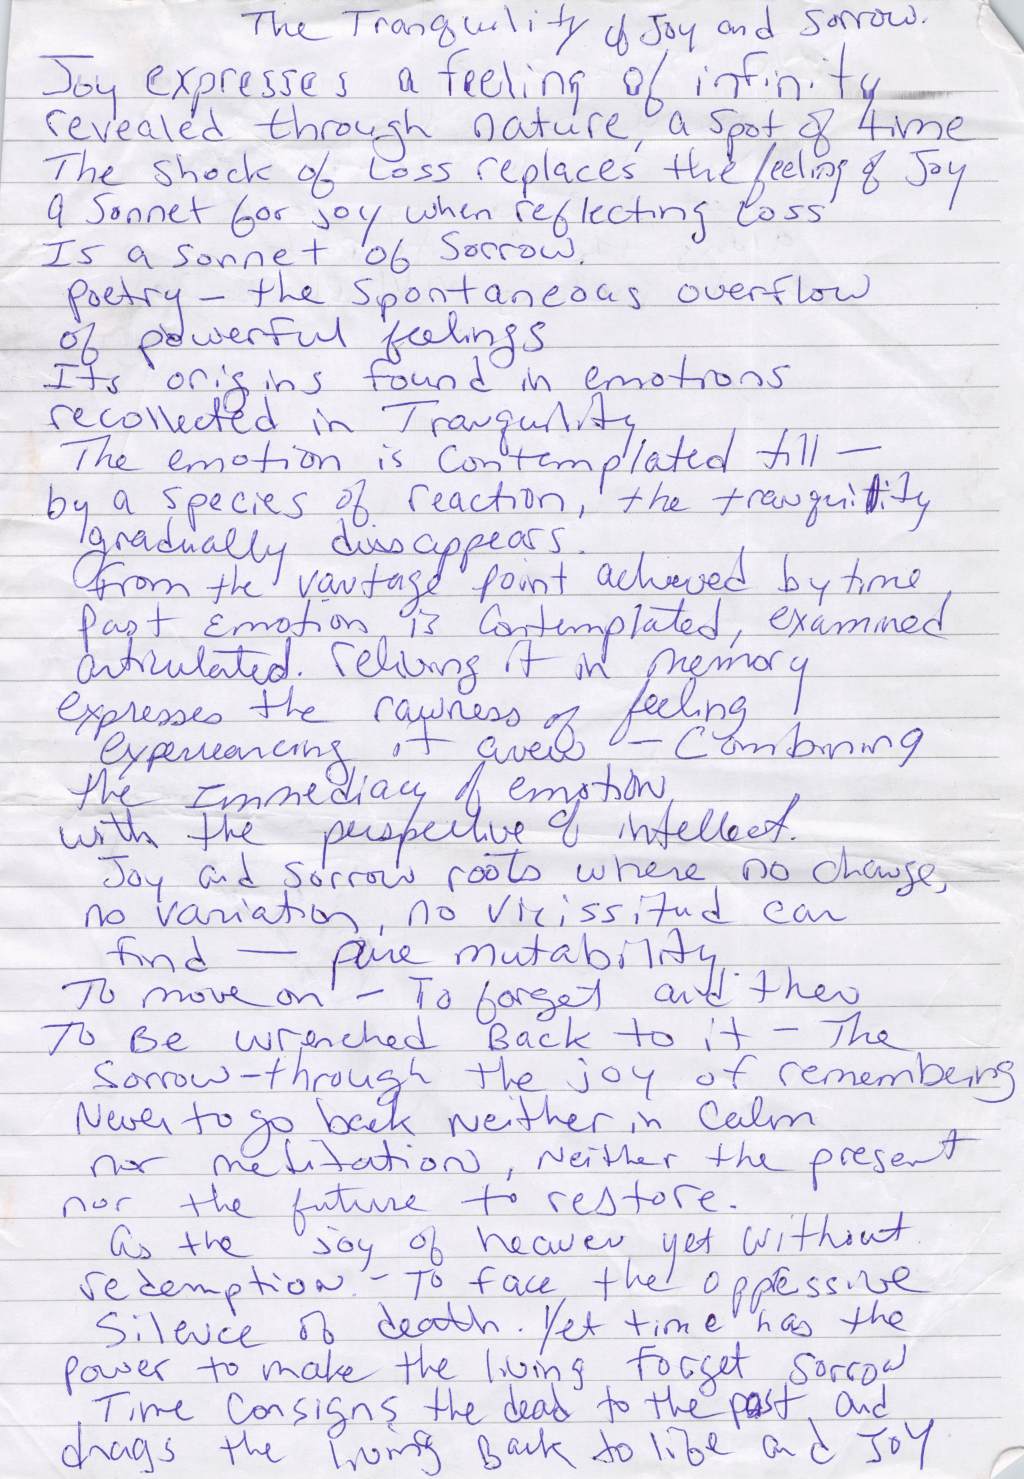 The Tranquility of Joy and Sorrow.
Joy expresses a feeling of infinity
revealed through nature, a spot of time
The shock of Loss replaces the feeling of Joy
A Sonnet for joy when reflecting Loss
Is a sonnet of Sorrow.
poetry – the spontaneous overflow
of powerful feelings
Its origins found in emotions
recollected in Tranquility
The emotion is Contemplated till –
by a species of reaction, the tranquility
gradually dissappears.
From the vantage point achieved by time,
past Emotion is Contemplated, examined
articulated. reliving it in memory
expresses the rawness of feeling
experiencing it anew – Combining
the Immediacy of emotion
with the perspective of intellect.
Joy and Sorrow roots where no change,
no variation, no vicissitud can
find – pure mutability
To move on – To forget and then
To Be wrenched Back to it – The
Sorrow – through the joy of remembeing
Never to go back Neither in Calm
nor meditation, Neither the present
nor the future to restore.
As the joy of heaven yet without
redemption – To face the oppressive
Silence of death. Yet time has the
power to make the living Forget Sorrow
Time Consigns the dead to the past and
drags the living Back to life and JOY